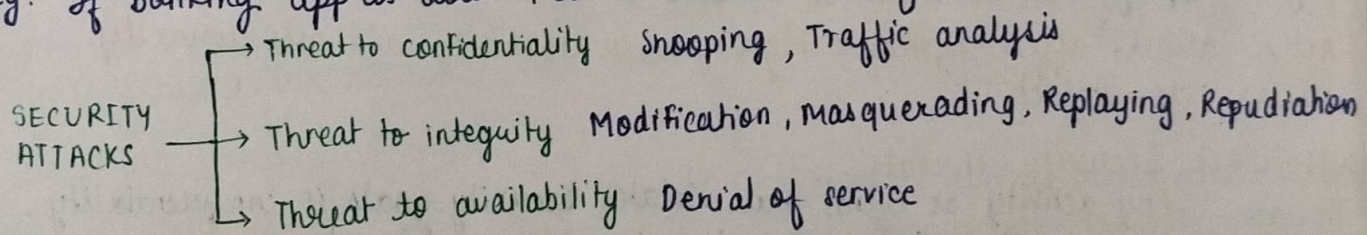 g. of banking app
Threat to confidentiality Snooping, Traffic analysis
SECURITY
ATTACKS
Threat to integuity Modification, Masquerading, Replaying, Repudiation
Threat to availability Denial of service